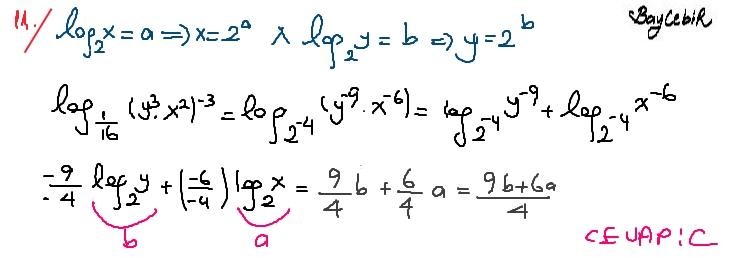 11./ log₂x = a ⇒ x = 2ᵃ ∧ log₂y = b ⇒ y = 2ᵇ BayCebiR
log_{1/16} (y³·x²)⁻³ = log_{2⁻⁴} (y⁻⁹·x⁻⁶) = log_{2⁻⁴} y⁻⁹ + log_{2⁻⁴} x⁻⁶
-9/-4 log₂y + (-6/-4) log₂x = 9/4 b + 6/4 a = (9b+6a)/4
b a
CEVAP: C